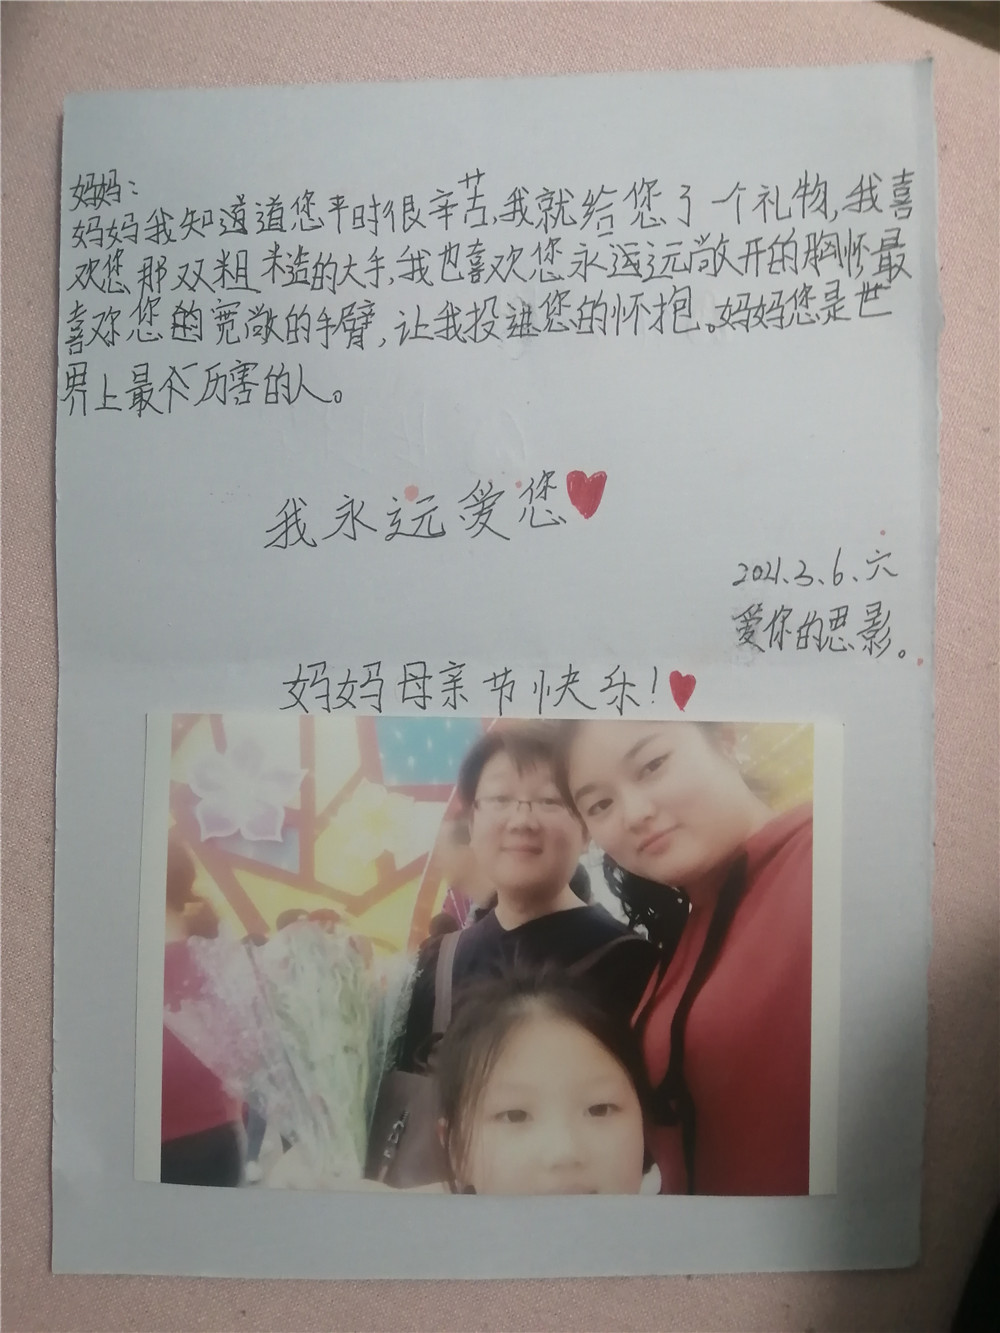 妈妈：
妈妈我知道道您平时很辛苦，我就给您了一个礼物，我喜
欢您那双粗糙的大手，我也喜欢您永远远敞开的胸怀最
喜欢您的宽敞的手臂，让我投进您的怀抱。妈妈您是世
界上最个厉害的人。
我永远爱您
2021.3.6、六
爱你的思影。
妈妈母亲节快乐！